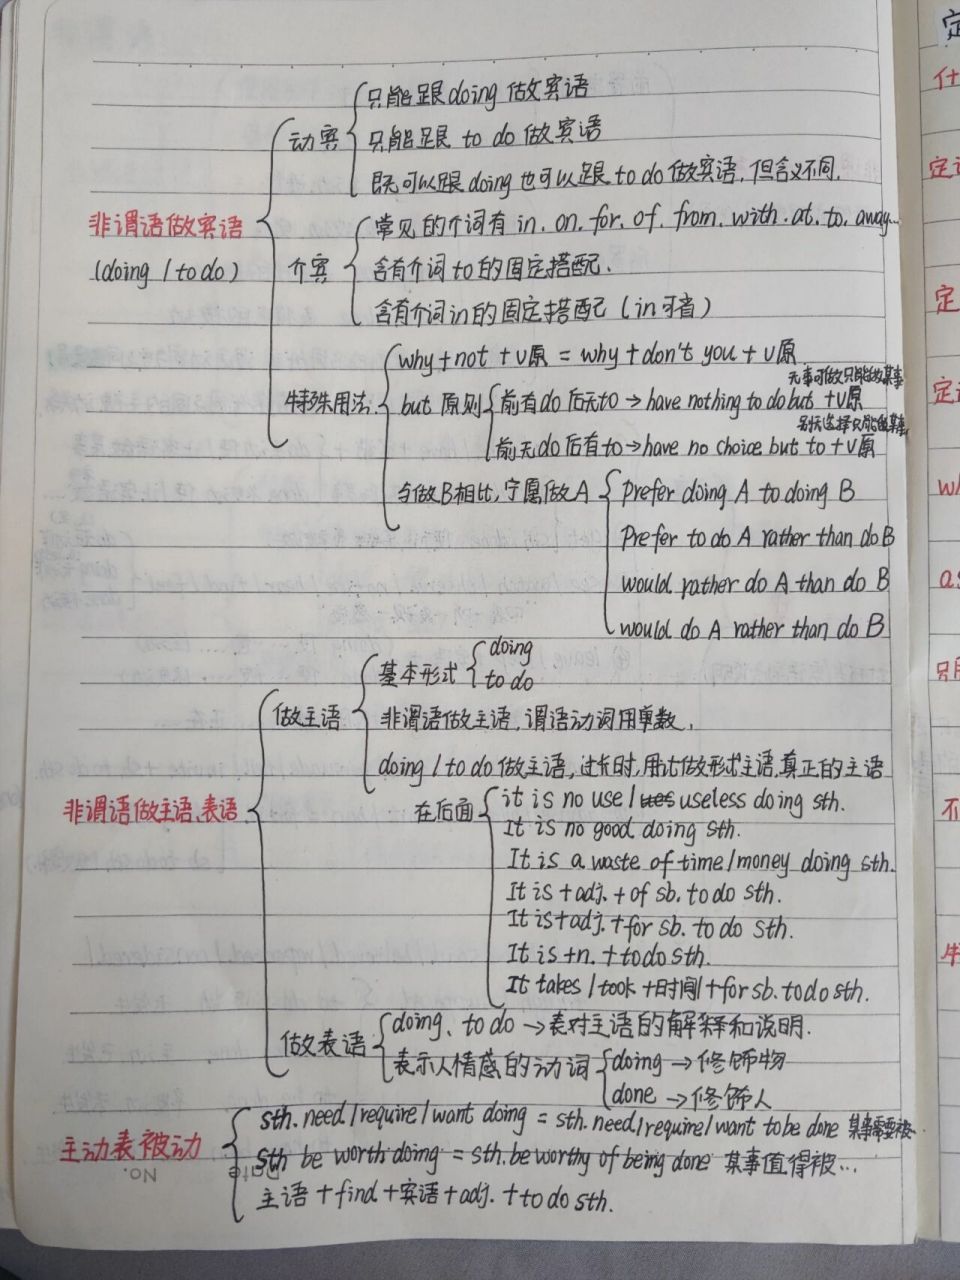 只能跟doing做宾语
动宾
只能跟 to do 做宾语
既可以跟doing也可以跟to do做宾语,但含义不同.
非谓语做宾语
常见的介词有 in. on. for. of. from. with. at. to. away...
(doing / to do)
介宾
含有介词to的固定搭配.
含有介词in的固定搭配 (in可省)
why+not+v原 = why+don't you+v原
无事可做只能做某事
特殊用法
but 原则
前有do后无to → have nothing to do but +v原
别无选择只能做某事
前无do后有to → have no choice but to +v原
与做B相比,宁愿做A
prefer doing A to doing B
Prefer to do A rather than do B
would rather do A than do B
would do A rather than do B
doing
基本形式
to do
做主语
非谓语做主语,谓语动词用单数,
doing / to do 做主语,过长时,用it做形式主语,真正的主语
非谓语做主语、表语
在后面
it is no use / useless doing sth.
It is no good doing sth.
It is a waste of time/money doing sth.
It is +adj. + of sb. to do sth.
It is+adj.+for sb. to do sth.
It is +n. + to do sth.
It takes / took +时间+for sb. to do sth.
做表语
doing、to do → 表对主语的解释和说明.
表示人情感的动词
doing → 修饰物
done → 修饰人
主动表被动
sth. need/require/want doing = sth. need/require/want to be done 某事需要被...
sth be worth doing = sth. be worthy of being done 某事值得被...
主语+find+宾语+adj.+to do sth.
No.
Date
定
什
定
定
定
wh
as
只
不